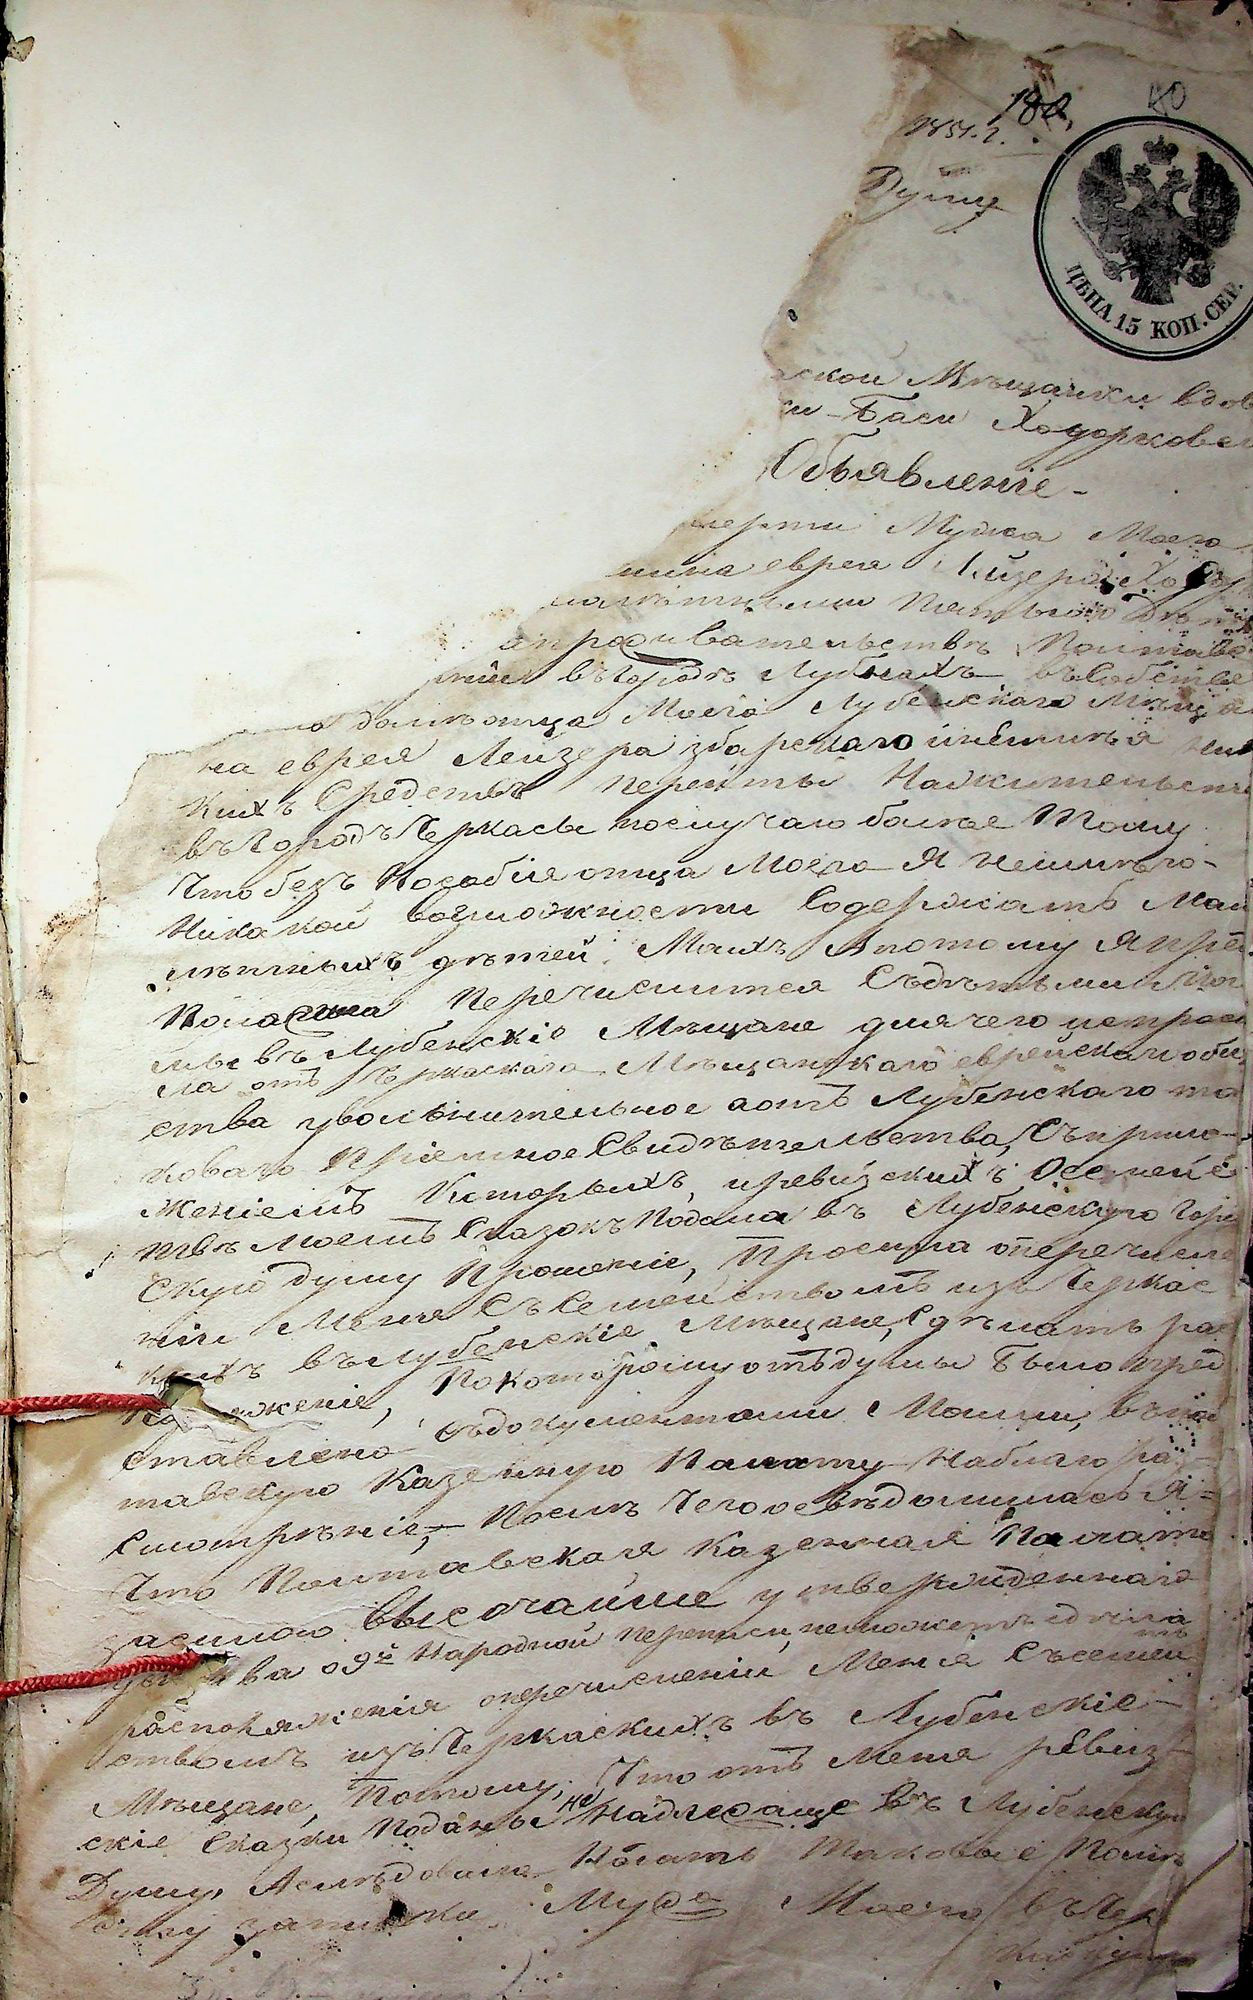 180
40
1851. г.
Думу
ЦѢНА 15 КОП. СЕР.
ской Мѣщанки вдов
ки Баси Ходорковск
Объявленіе
мерти Мужа Моего
нина еврея Лизера
лолѣтными
въ городѣ Лубнахъ въ собствен
домѣ отца Моего Лубенскаго Мѣща
на еврея Лейзера збарскаго инеимѣя ник
кихъ Средствъ перейты Нажительств
въ Городъ Черкасы послучаю болѣе Тому
Что безъ Пособія отца Моего Я неимѣю
Никакой возможности Содержать Мал
лѣтныхъ дѣтей Моихъ Апотому Япред
Положила Перечислится Съдѣтьми Мои
ми въ Лубенскіе Мѣщане длячего испроси
ла отъ Черкаскаго Мѣщанскаго еврейскаго общ
ства увольнительное аотъ Лубенскаго та
коваго Пріемное Свидѣтельства, Съприло
женіемъ Которыхъ, иревизскихъ Осемей
твѣ Моемъ Сказокъ Подала въ Лубенскую Горо
скую думу Прошеніе, Просила оперечисле
ніи Меня Съ Семействомъ изъ Черкас
кихъ въ Лубенскіе Мѣщане, Сдѣлать рас
женіе, Покоторому отъ думы было пред
ставлено съдокументами Моими, въ Пол
тавскую Казенную Палату Наблагораз
смотрѣніе, Послѣ Чего освѣдомилась Я
Что Полтавская Казенная Палата
засилою высочайше утвержденнаго
ва о 9й Народной переписи, неможетъ сдѣлать
распоряженія оперечисленіи Меня Съсемей
ствомъ изъ Черкаскихъ въ Лубенскіе
Мѣщане, Потому, Что отъ Меня ревиз
скіе Сказки Поданы не Надлежаще въ Лубенскую
Думу, Аслѣдовало Подать Таковые Полѣ
запискѣ Мужа Моего въ Чер